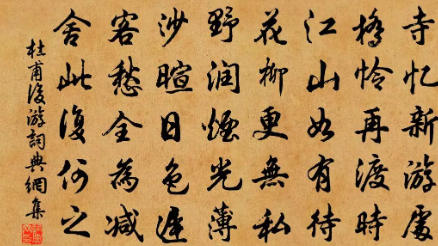 寺忆新游處
橋怜再渡時
江山如有待
花柳更無私
野润煙光薄
沙暄日色遲
客愁全為减
舍此復何之
杜甫後游詞典網集